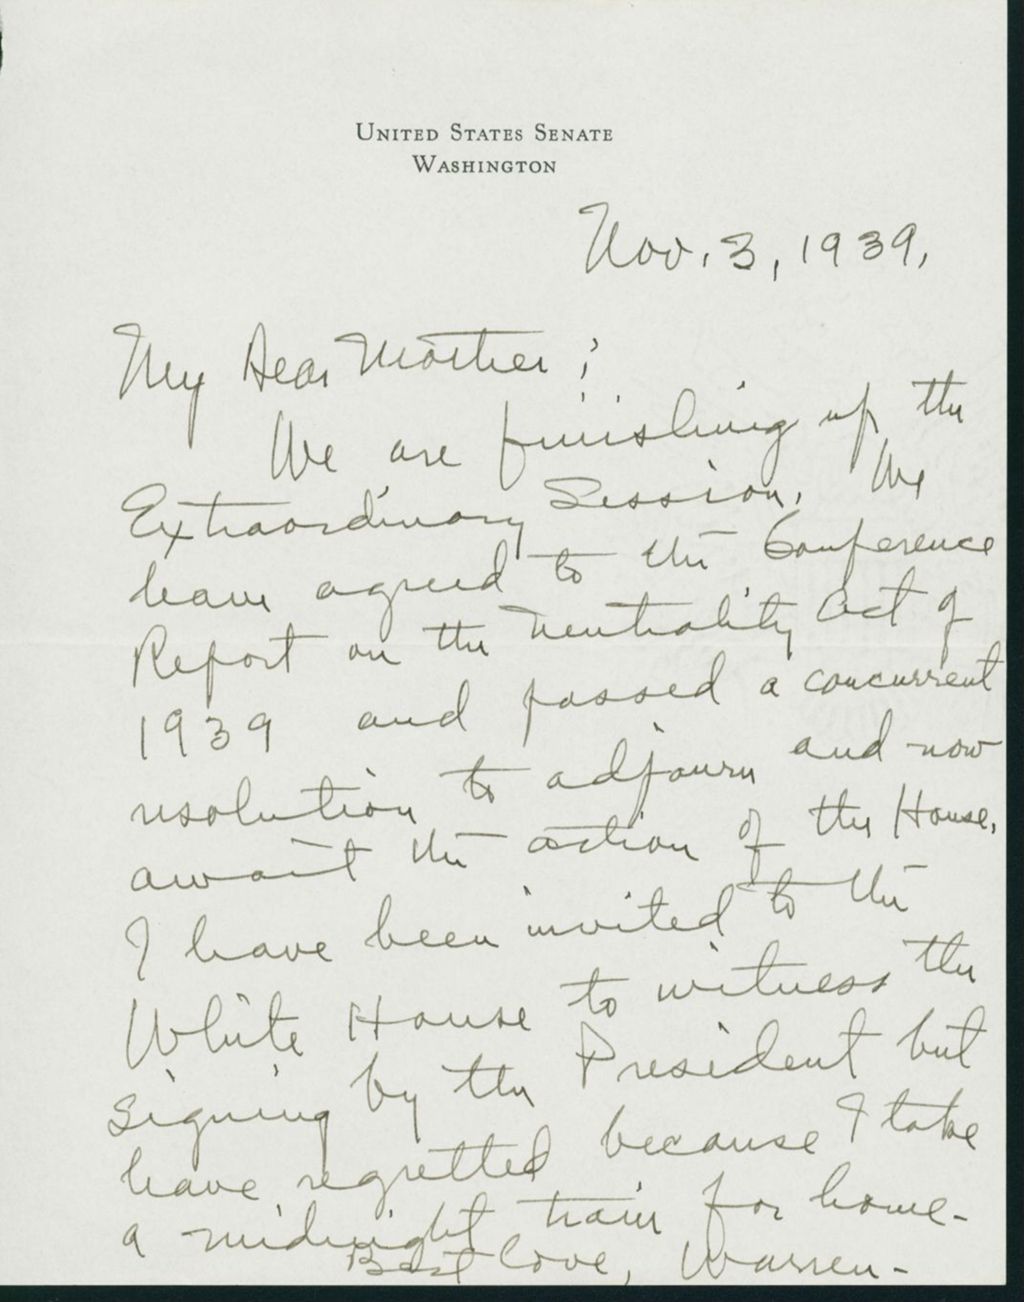 UNITED STATES SENATE
WASHINGTON
Nov. 3, 1939,
My Dear Mother;
We are finishing up the
Extraordinary Session. We
have agreed to the Conference
Report on the Neutrality Act of
1939 and passed a concurrent
resolution to adjourn and now
await the action of the House.
I have been invited to the
White House to witness the
signing by the President but
have regretted because I take
a midnight train for home-
Best love, Warren-